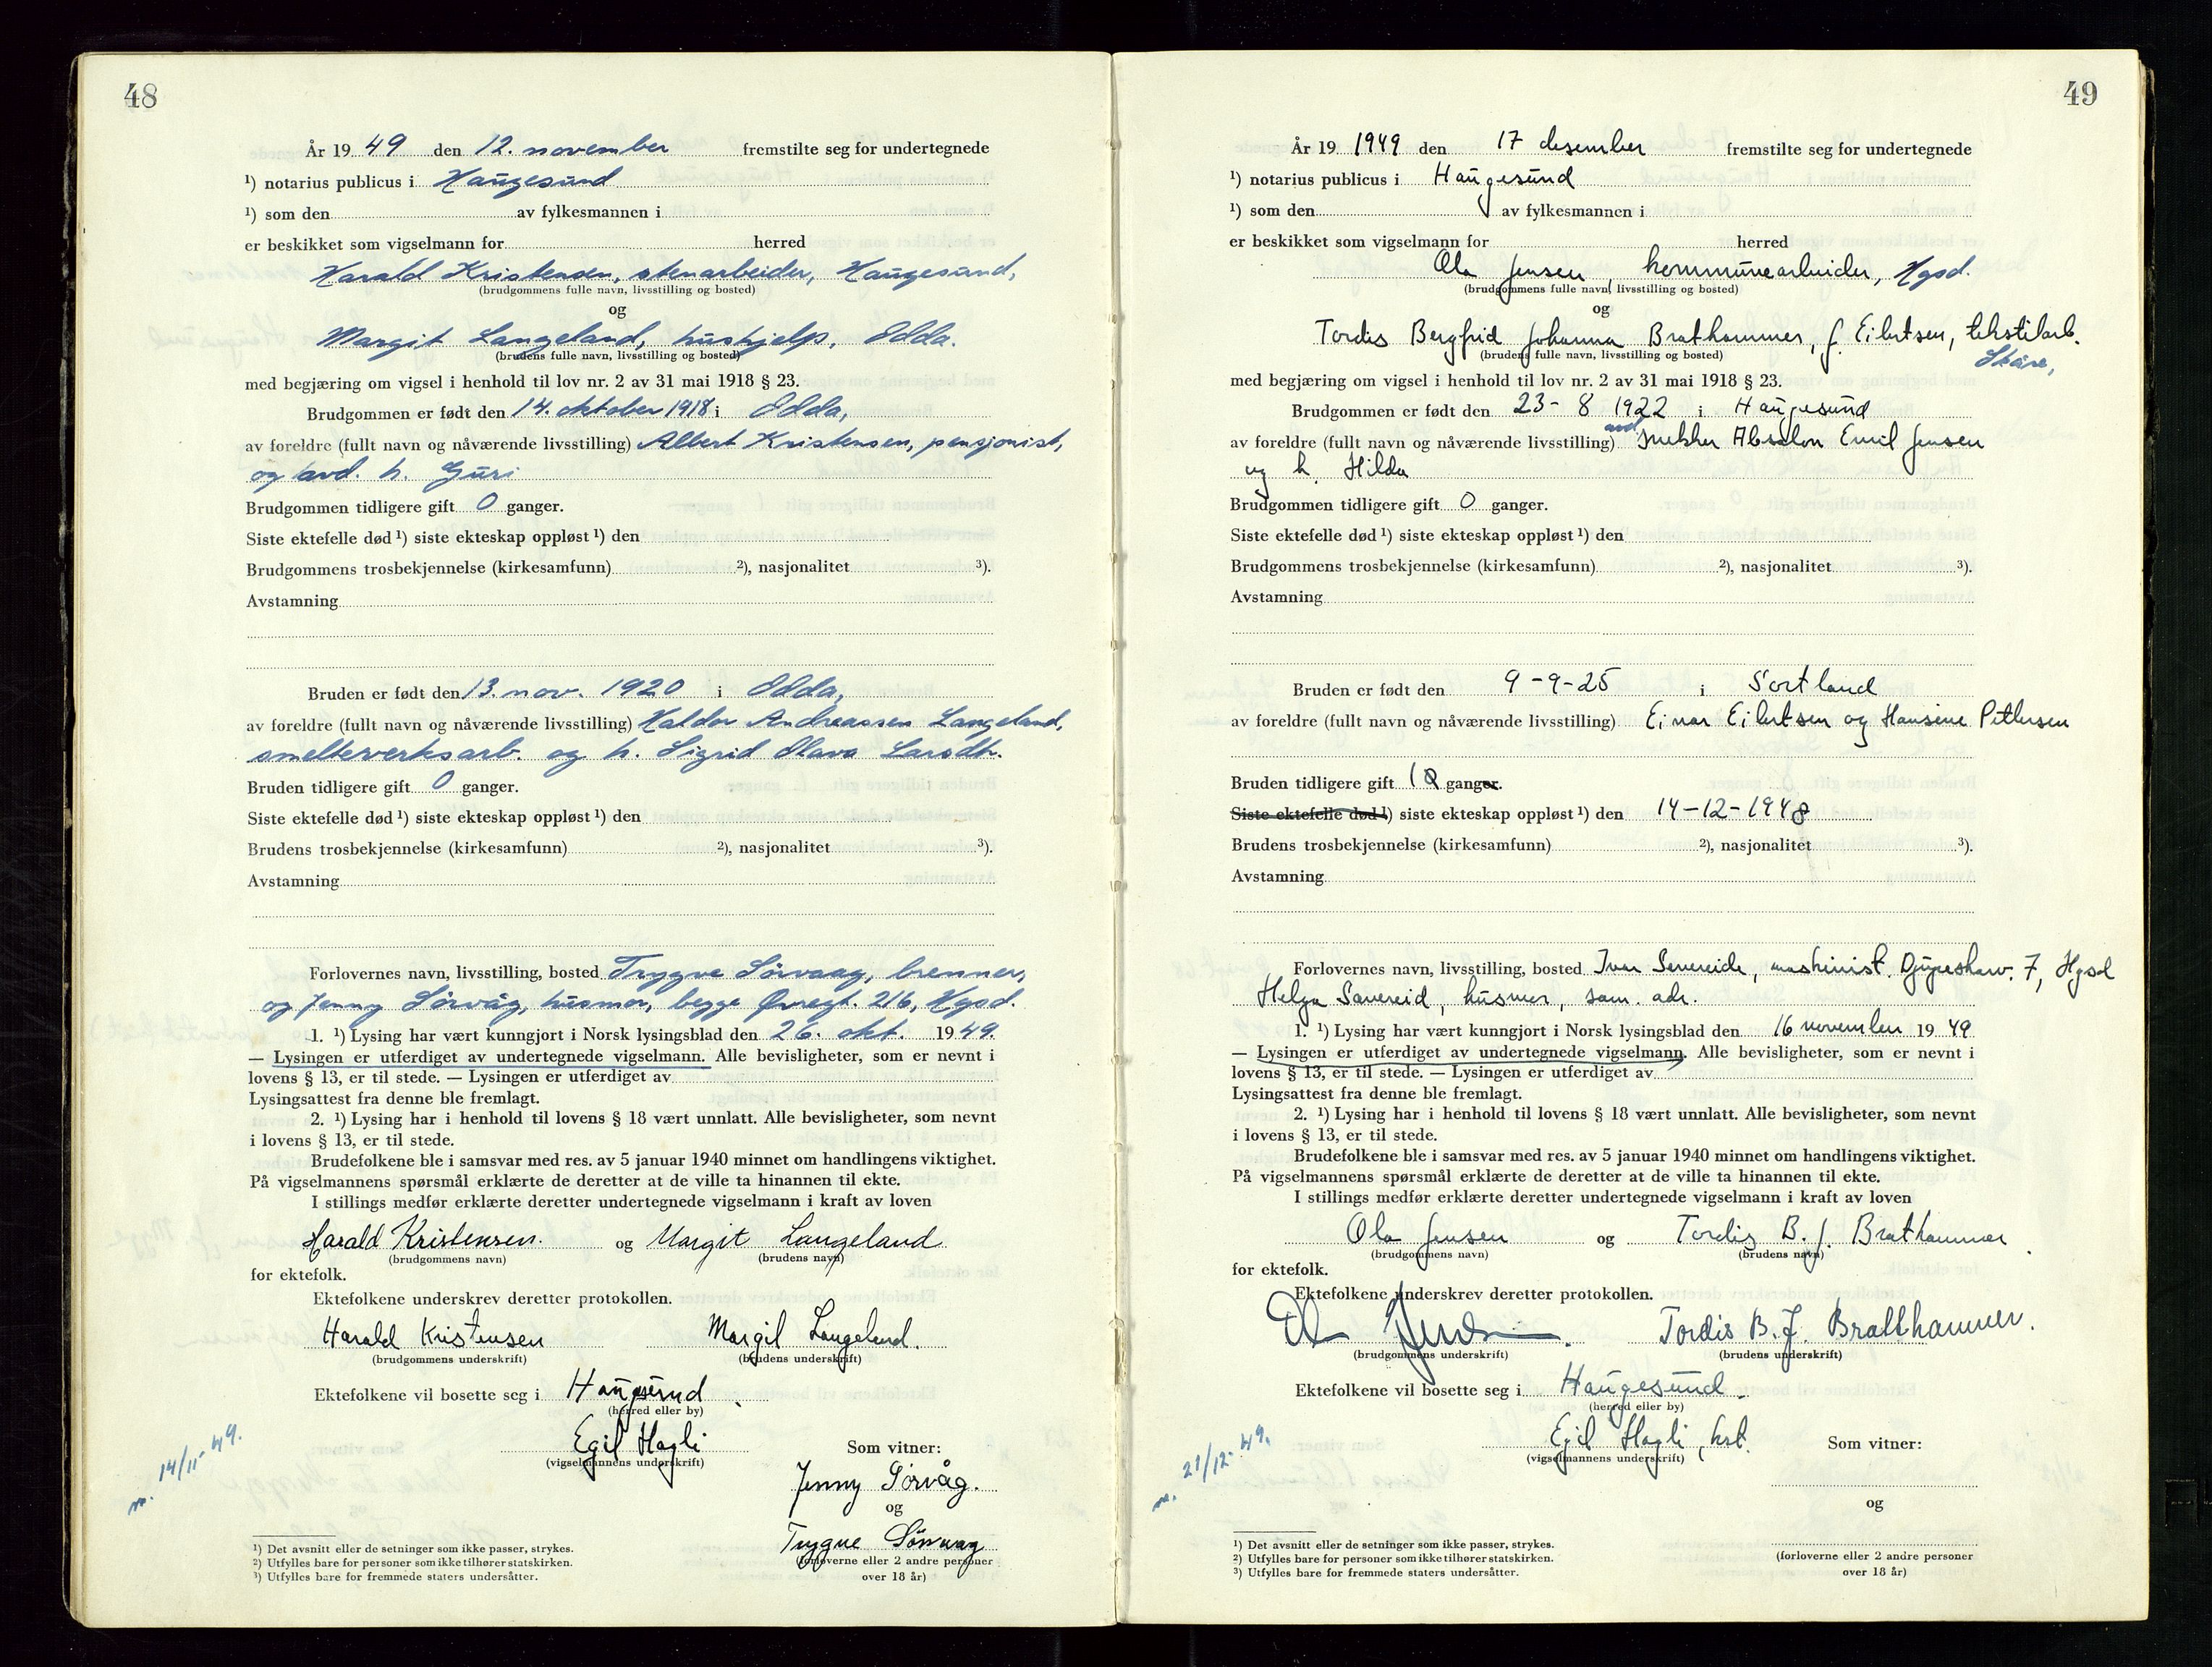 48
År 19 49 den 12. november fremstilte seg for undertegnede
¹) notarius publicus i Haugesund
¹) som den av fylkesmannen i
er beskikket som vigselmann for herred
Harald Kristensen, stenarbeider, Haugesund,
(brudgommens fulle navn, livsstilling og bosted)
og
Margit Langeland, hushjelp, Odda.
(brudens fulle navn, livsstilling og bosted)
med begjæring om vigsel i henhold til lov nr. 2 av 31 mai 1918 § 23.
Brudgommen er født den 14. oktober 1918 i Odda,
av foreldre (fullt navn og nåværende livsstilling) Albert Kristensen, pensjonist,
og avd. h. Guri
Brudgommen tidligere gift 0 ganger.
Siste ektefelle død ¹) siste ekteskap oppløst ¹) den
Brudgommens trosbekjennelse (kirkesamfunn) ²), nasjonalitet ³).
Avstamning
Bruden er født den 13. nov. 1920 i Odda,
av foreldre (fullt navn og nåværende livsstilling) Haldor Andreassen Langeland,
smelteverksarb. og h. Sigrid Olava Larsdtr.
Bruden tidligere gift 0 ganger.
Siste ektefelle død ¹) siste ekteskap oppløst ¹) den
Brudens trosbekjennelse (kirkesamfunn) ²), nasjonalitet ³).
Avstamning
Forlovernes navn, livsstilling, bosted Trygve Sörvaag, brenner,
og Jenny Sörvåg, husmor, begge Øvregt. 216, Hgsd.
1. ¹) Lysing har vært kunngjort i Norsk lysingsblad den 26. okt. 19 49.
— Lysingen er utferdiget av undertegnede vigselmann. Alle bevisligheter, som er nevnt i
lovens § 13, er til stede. — Lysingen er utferdiget av
Lysingsattest fra denne ble fremlagt.
2. ¹) Lysing har i henhold til lovens § 18 vært unnlatt. Alle bevisligheter, som nevnt
i lovens § 13, er til stede.
Brudefolkene ble i samsvar med res. av 5 januar 1940 minnet om handlingens viktighet.
På vigselmannens spørsmål erklærte de deretter at de ville ta hinannen til ekte.
I stillings medfør erklærte deretter undertegnede vigselmann i kraft av loven
Harald Kristensen. og Margit Langeland
(brudgommens navn) (brudens navn)
for ektefolk.
Ektefolkene underskrev deretter protokollen.
Harald Kristensen Margit Langeland.
(brudgommens underskrift) (brudens underskrift)
Ektefolkene vil bosette seg i Haugesund.
(herred eller by)
Egil Hagli Som vitner:
(vigselmannens underskrift)
14/11-49.
Jenny Sörvåg.
og
Trygve Sörvaag
(forloverne eller 2 andre personer
over 18 år)
¹) Det avsnitt eller de setninger som ikke passer, strykes.
²) Utfylles bare for personer som ikke tilhører statskirken.
³) Utfylles bare for fremmede staters undersåtter.
49
År 19 1949 den 17 desember fremstilte seg for undertegnede
¹) notarius publicus i Haugesund
¹) som den av fylkesmannen i
er beskikket som vigselmann for herred
Ola Jensen, kommunearbeider, Hgsd.
(brudgommens fulle navn, livsstilling og bosted)
og
Tordis Bergfrid Johanna Brathammer, f. Eilertsen, tekstilarb.
(brudens fulle navn, livsstilling og bosted) Skåre,
med begjæring om vigsel i henhold til lov nr. 2 av 31 mai 1918 § 23.
Brudgommen er født den 23 - 8 1922 i Haugesund
av foreldre (fullt navn og nåværende livsstilling) avd. snekker Absalon Emil Jensen
og h. Hilda
Brudgommen tidligere gift 0 ganger.
Siste ektefelle død ¹) siste ekteskap oppløst ¹) den
Brudgommens trosbekjennelse (kirkesamfunn) ²), nasjonalitet ³).
Avstamning
Bruden er født den 9-9-25 i Sortland
av foreldre (fullt navn og nåværende livsstilling) Einar Eilertsen og Hansine Pettersen
Bruden tidligere gift 1 ganger.
Siste ektefelle død ¹) siste ekteskap oppløst ¹) den 14-12-1948
Brudens trosbekjennelse (kirkesamfunn) ²), nasjonalitet ³).
Avstamning
Forlovernes navn, livsstilling, bosted Ivar Sævereide, maskinist, 7, Hgsd
Helga Sævereid, husmor, sam. adr.
1. ¹) Lysing har vært kunngjort i Norsk lysingsblad den 16 november 19 49
— Lysingen er utferdiget av undertegnede vigselmann. Alle bevisligheter, som er nevnt i
lovens § 13, er til stede. — Lysingen er utferdiget av
Lysingsattest fra denne ble fremlagt.
2. ¹) Lysing har i henhold til lovens § 18 vært unnlatt. Alle bevisligheter, som nevnt
i lovens § 13, er til stede.
Brudefolkene ble i samsvar med res. av 5 januar 1940 minnet om handlingens viktighet.
På vigselmannens spørsmål erklærte de deretter at de ville ta hinannen til ekte.
I stillings medfør erklærte deretter undertegnede vigselmann i kraft av loven
Ola Jensen og Tordis B. J. Brathammer
(brudgommens navn) (brudens navn)
for ektefolk.
Ektefolkene underskrev deretter protokollen.
Ola Jensen. Tordis B. J. Bratthammer.
(brudgommens underskrift) (brudens underskrift)
Ektefolkene vil bosette seg i Haugesund.
(herred eller by)
Egil Hagli, kst. Som vitner:
(vigselmannens underskrift)
21/12-49.
og
(forloverne eller 2 andre personer
over 18 år)
¹) Det avsnitt eller de setninger som ikke passer, strykes.
²) Utfylles bare for personer som ikke tilhører statskirken.
³) Utfylles bare for fremmede staters undersåtter.